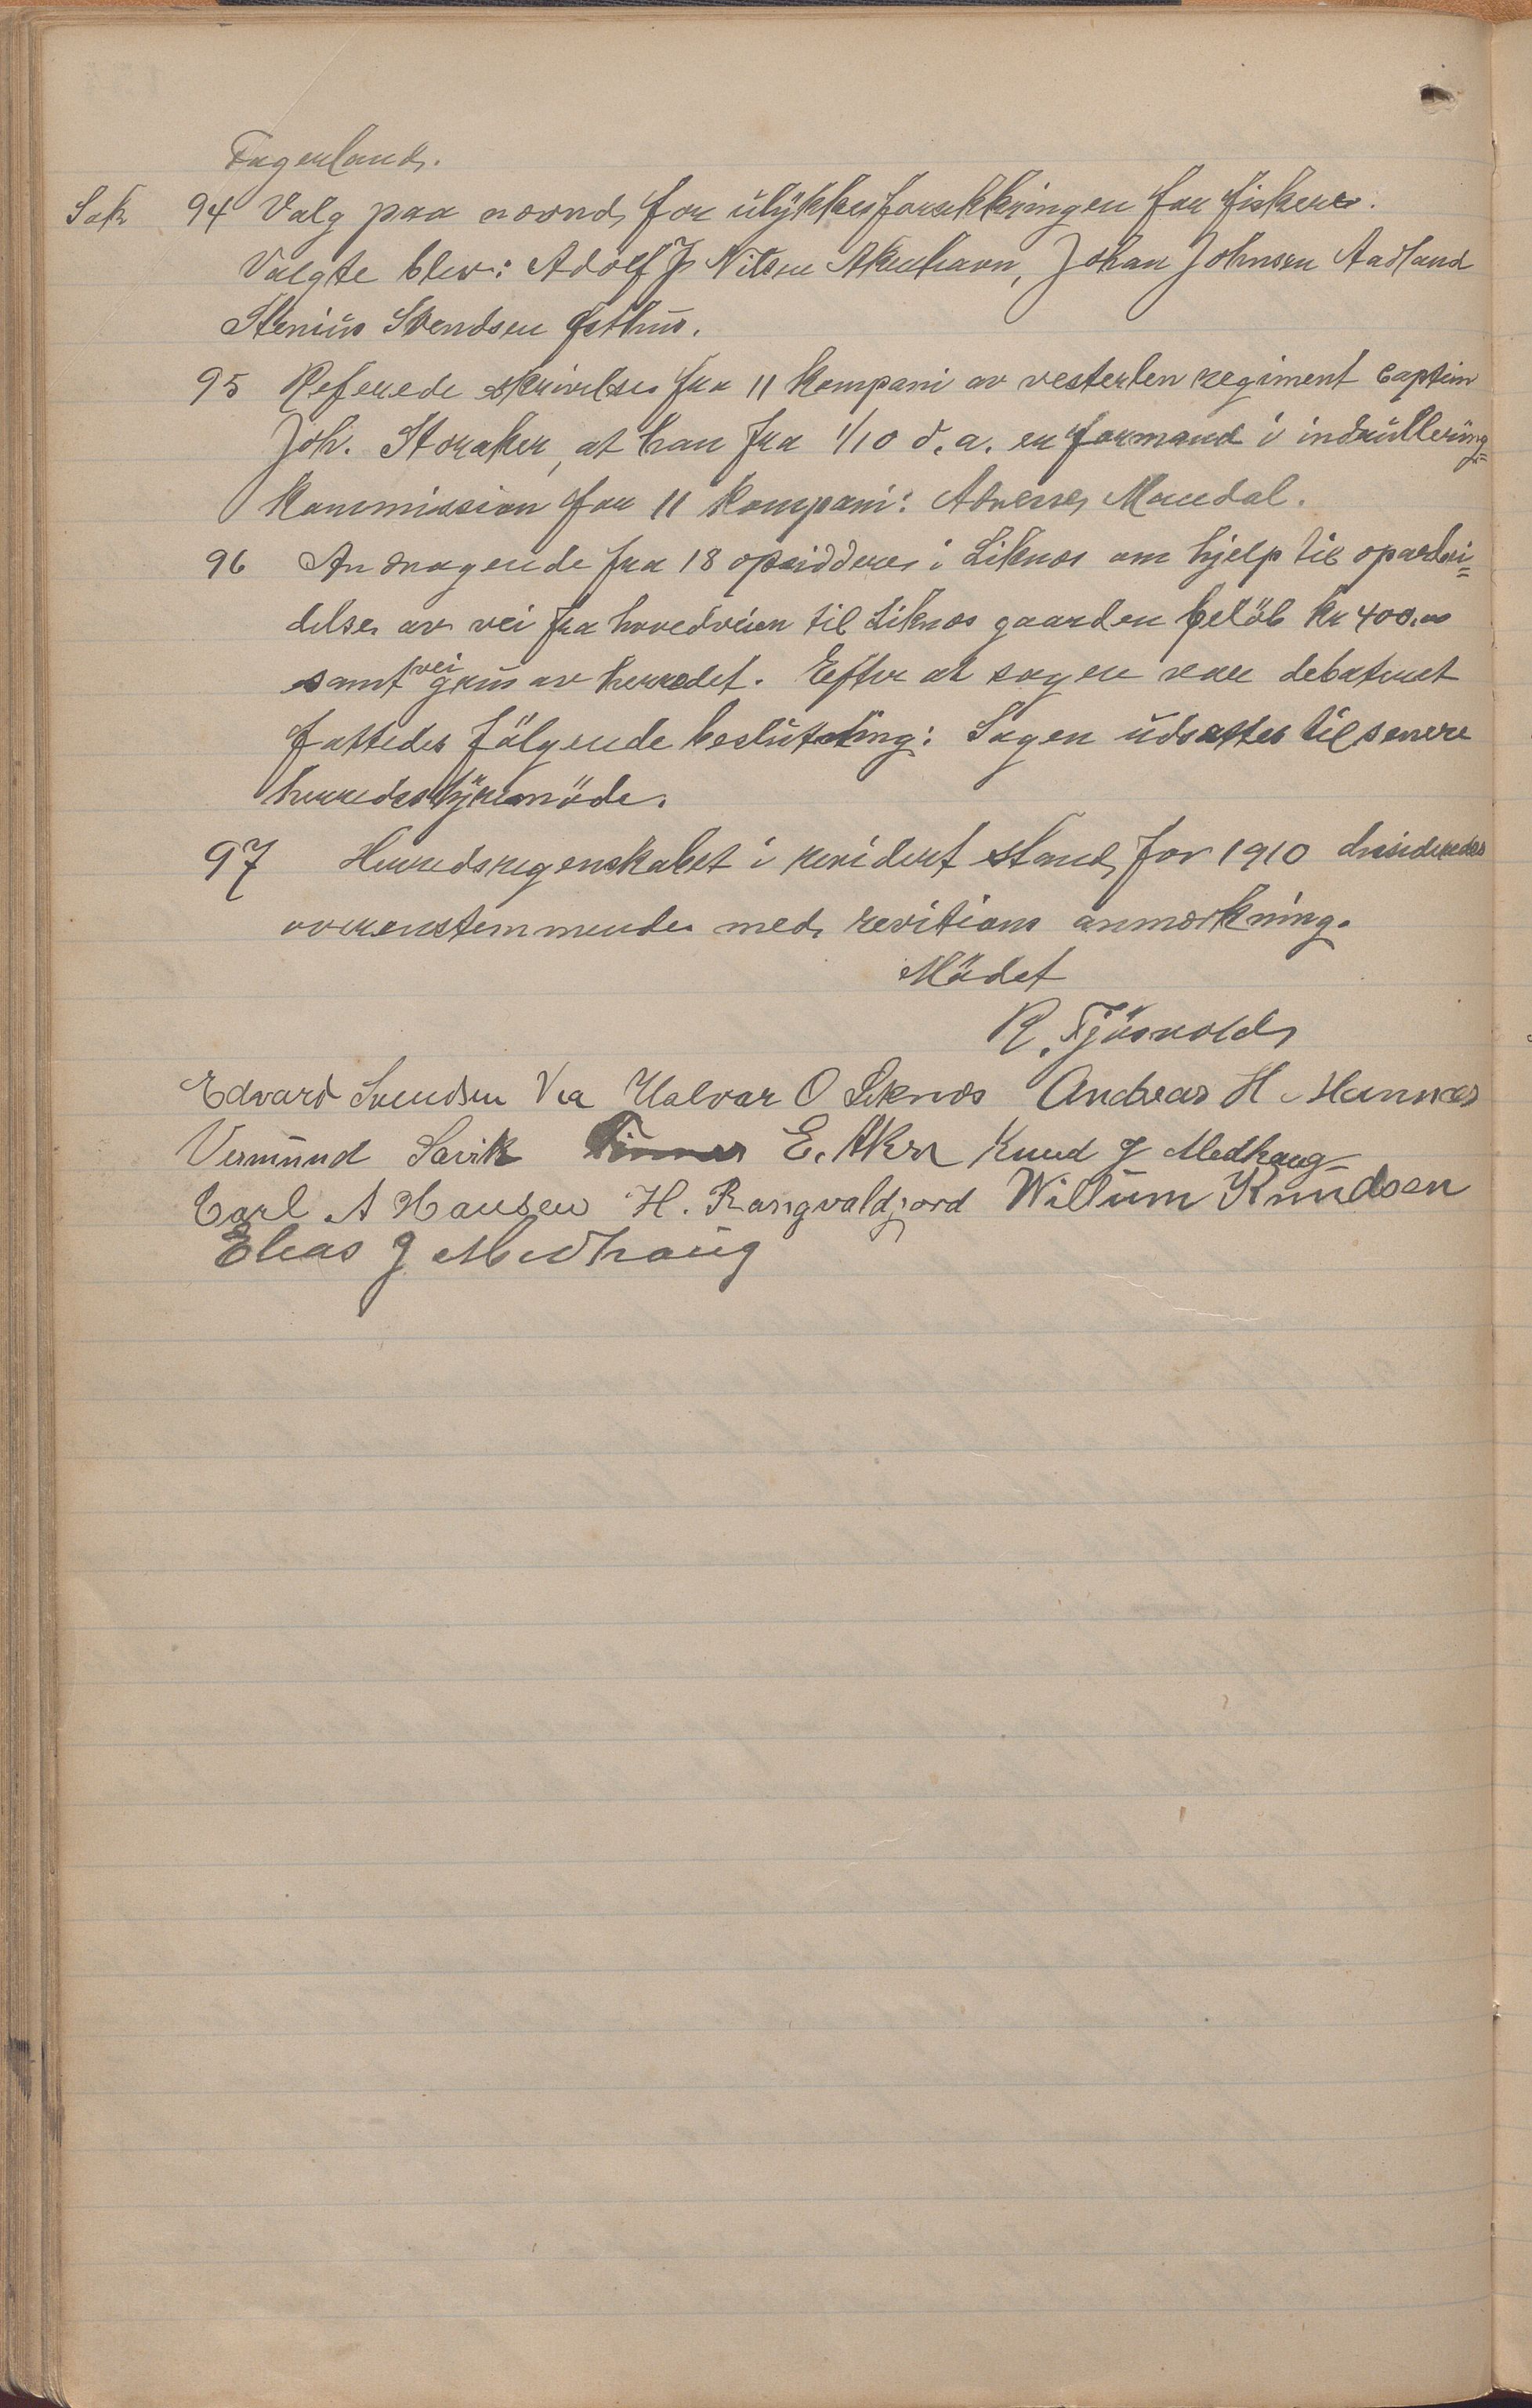 Fagerland.
Sak 94 Valg paa nævnd for ulykkesforsikkringen for fiskere.
Valgte blev: Adolf J. Nilsen Akrehavn, Johan Johnsen Aadland
Stenius Svendsen Østhus.
95 Referede skrivelse fra 11 kompani av vesterlen regiment captein
Joh. Storaker, at han fra 1/10 d.a. er formand i indrullering=
kommission for 11 kompani: Adresse Mandal.
96 Andragende fra 18 opsiddere i Liknes om hjelp til oparbei=
delse av vei fra hovedveien til Liknes gaarden beløb kr 400.00
samt vei grus av herredet. Efter at sagen var debateret
fattedes følgende beslutning: Sagen udsættes til senere
herredsstyremøde.
97 Herredsregnskabet i revidert stand for 1910 desideredes
overenstemmende med revitions anmærkning.
Mødet
R. Fjøsvold
Edvard Svendsen Vea Halvar O Liknes Andreas H. Mannes
Vermund Sævik E. Aker Knud J Medhaug
Carl A Hansen H. Rangvaldjord Willum Knudsen
Elias J Medhaug